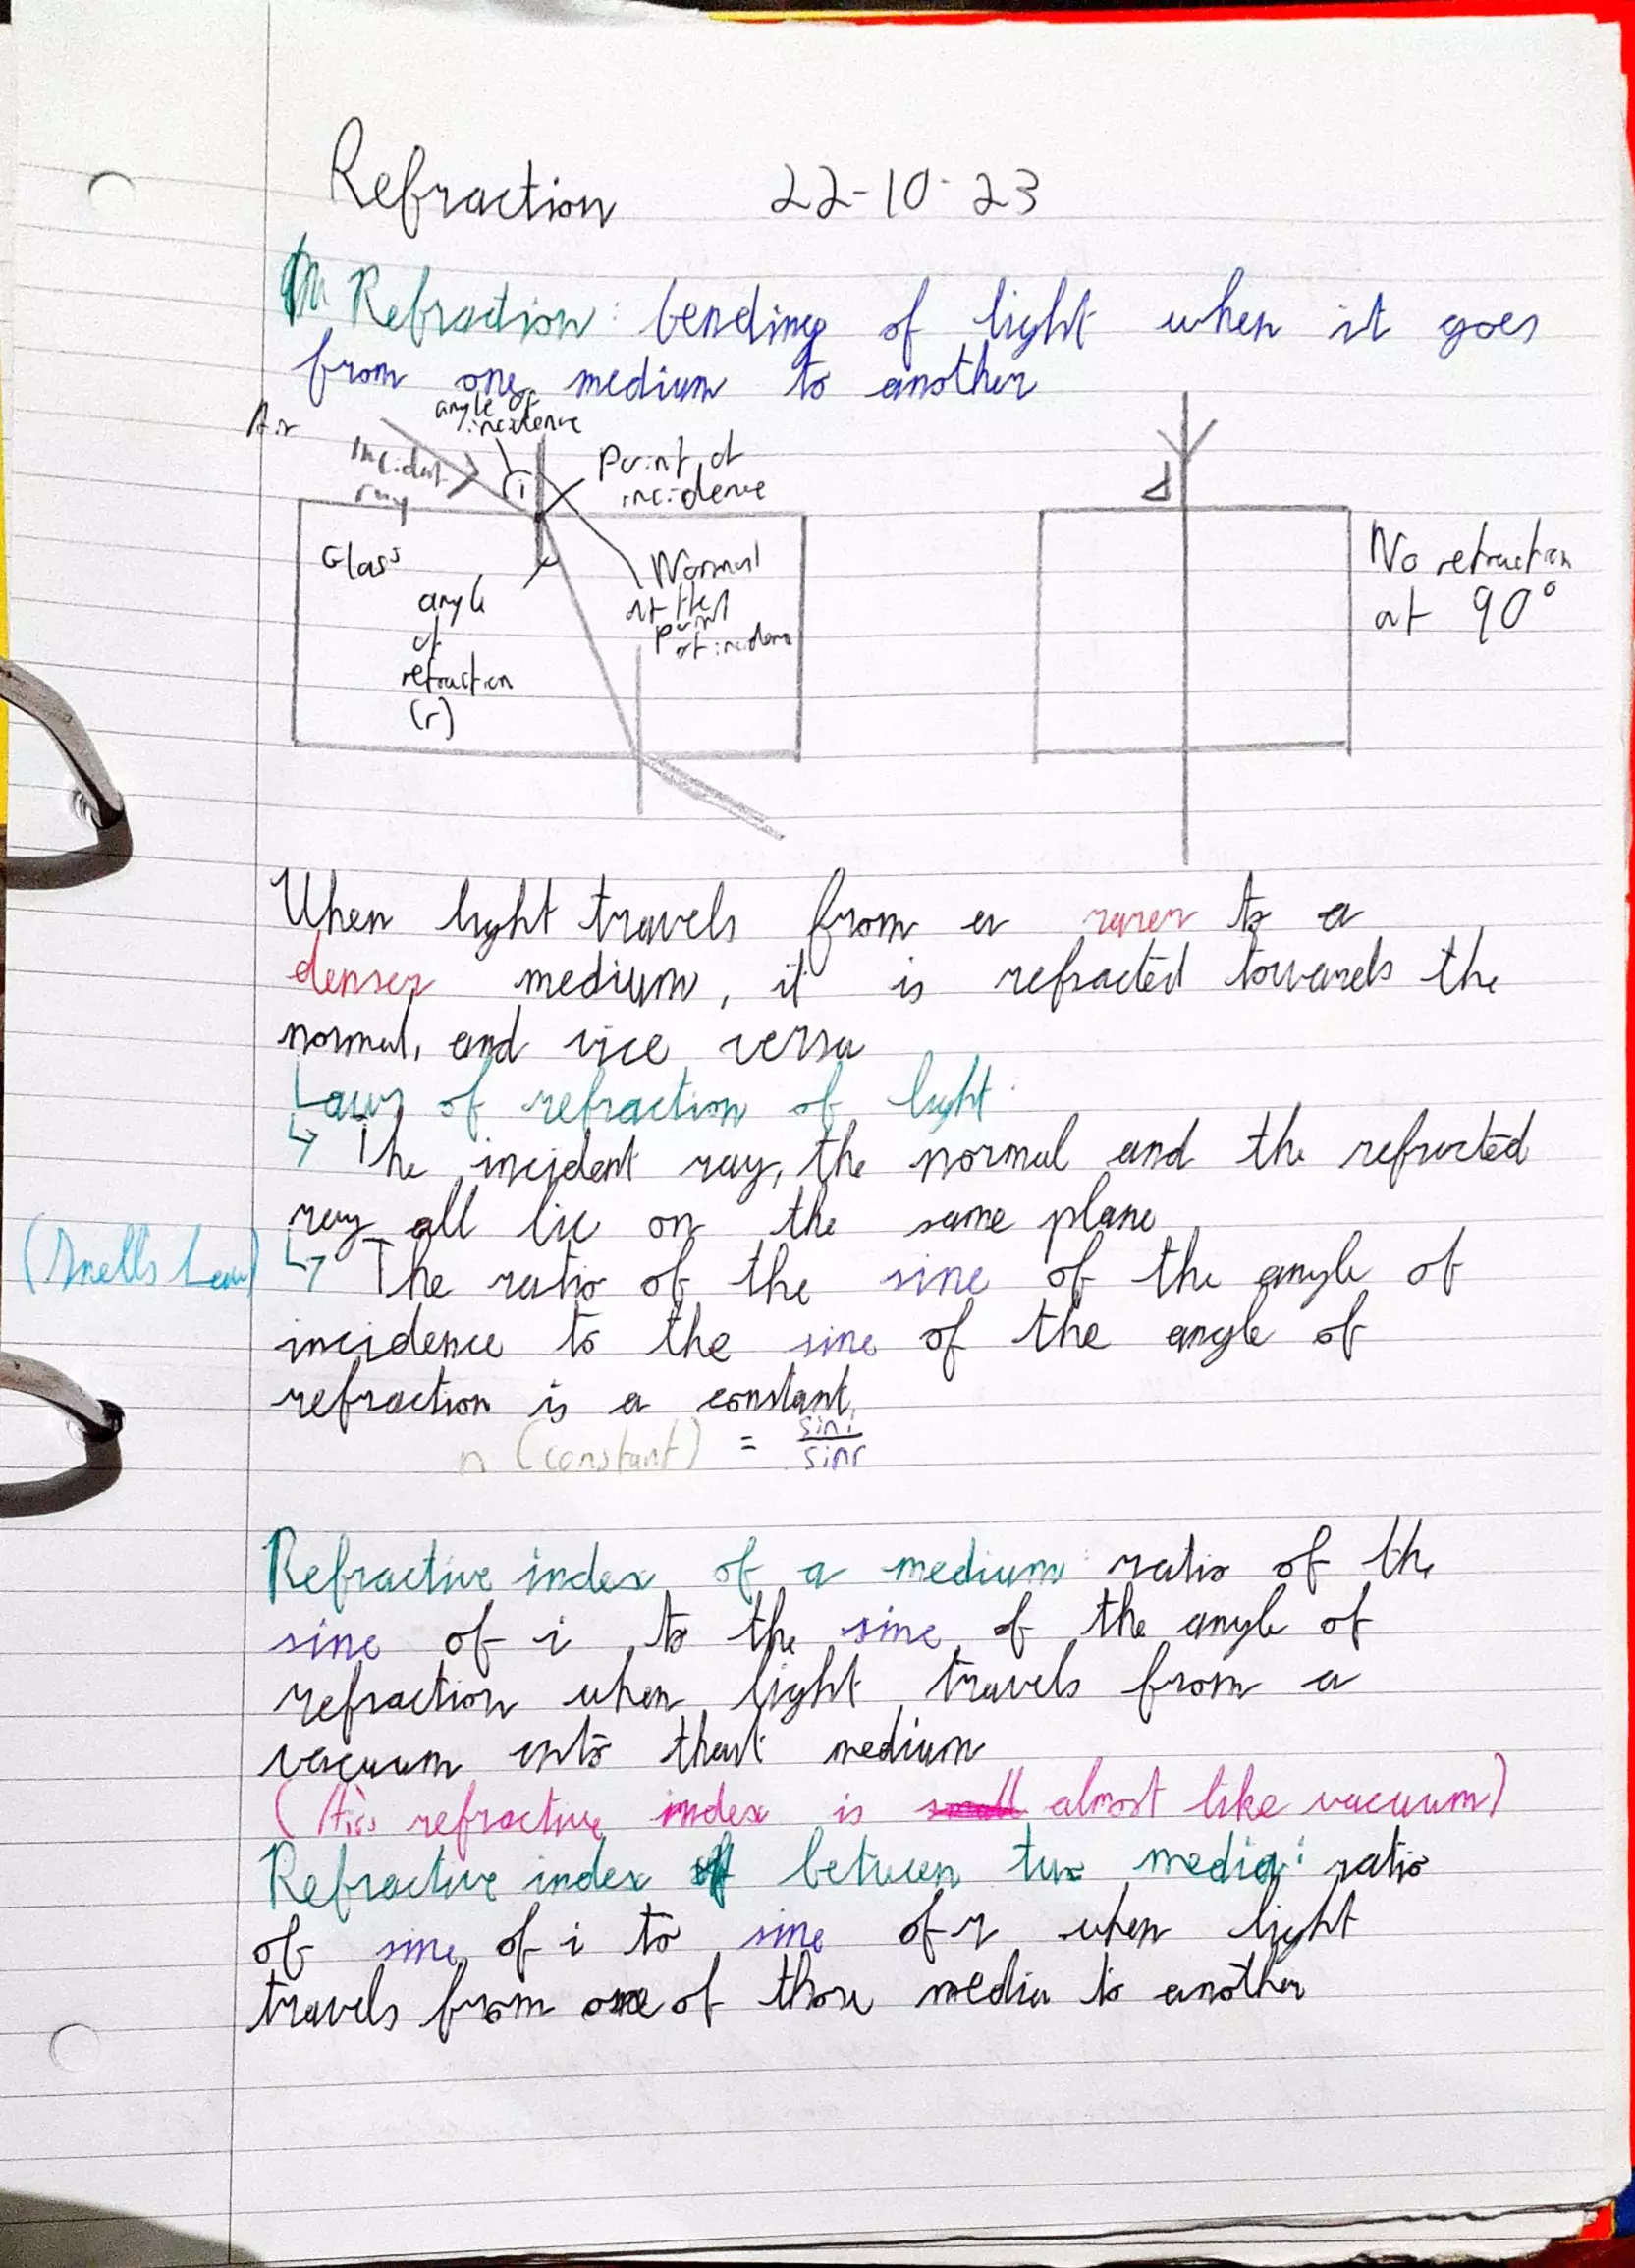 Refraction 22-10-23
Refraction: bending of light when it goes
from one medium to another
Air
angle of
incidence
Incident
ray
i
Point of
incidence
Glass
angle
of
refraction
(r)
Normal
at the
point
of incidence
No refraction
at 90°
When light travels from a rarer to a
denser medium, it is refracted towards the
normal, and vice versa
Laws of refraction of light:
↳ The incident ray, the normal and the refracted
ray all lie on the same plane
(Snells Law) ↳ The ratio of the sine of the angle of
incidence to the sine of the angle of
refraction is a constant.
n (constant) = sini/sinr
Refractive index of a medium: ratio of the
sine of i to the sine of the angle of
refraction when light travels from a
vacuum into that medium
(Airs refractive index is small almost like vacuum)
Refractive index of between two media: ratio
of sine of i to sine of r when light
travels from one of those media to another